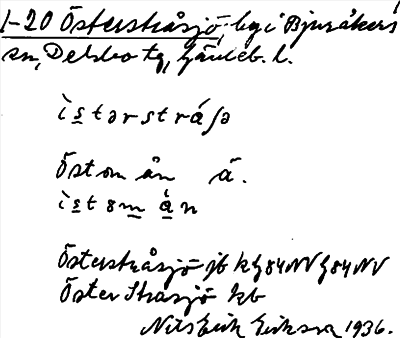 1-20 Österstråsjö, by i Bjuråkers
sn, Delsbo tg, Gävleb. l.
ìstərstráʃə
Östom ån å.
ìstomán
Österstråsjö jb kG84NV G84NV
Öster Stråsjö kb
Nils Erik Eriksson 1936.